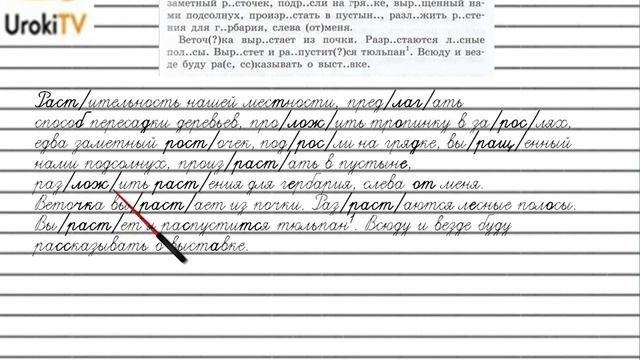 заметный р..сточек, подр..сли на гря..ке, выр..щенный на-
ми подсолнух, произр..стать в пустын.., разл..жить р..сте-
ния для г..рбария, слева (от)меня.
Веточ(?)ка выр..стает из почки. Разр..стаются л..сные
пол..сы. Выр..стет и ра..пустит(?)ся тюльпан¹. Всюду и вез-
де буду ра(с, сс)казывать о выст..вке.
UrokiTV
Раст/ительность нашей местности, пред/лаг/ать
способ пересадки деревьев, про/лож/ить тропинку в за/рос/лях,
едва заметный рост/очек, под/рос/ли на грядке, вы/ращ/енный
нами подсолнух, произ/раст/ать в пустыне,
раз/лож/ить раст/ения для гербария, слева от меня.
Веточка вы/раст/ает из почки. Раз/раст/аются лесные полосы.
Вы/раст/ет и распустится тюльпан¹. Всюду и везде буду
рассказывать о выставке.